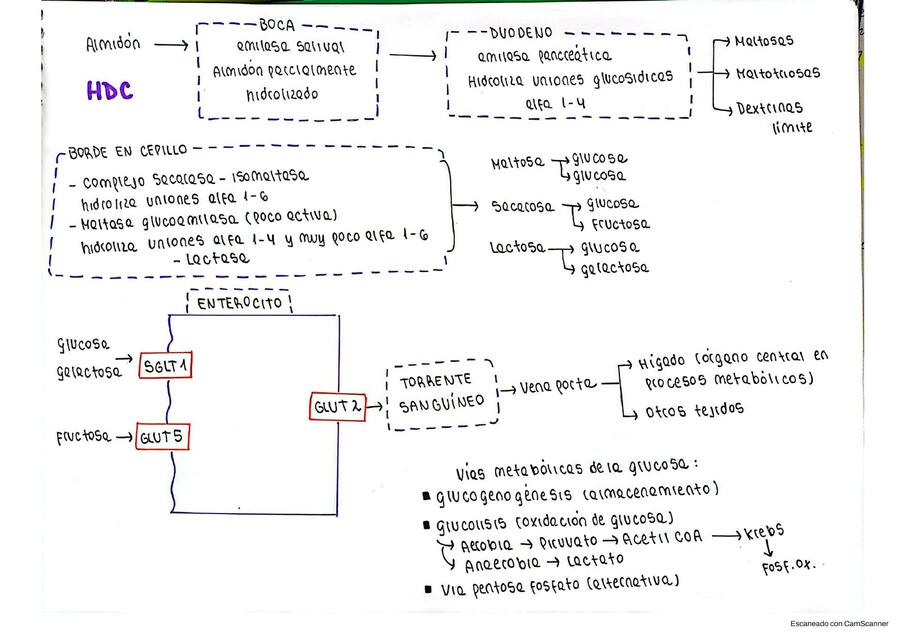 Almidón
HDC
BOCA
amilasa salival
Almidón parcialmente
hidrolizado
DUODENO
amilasa pancreática
Hidroliza uniones glucosídicas
alfa 1-4
Maltosas
Maltotriosas
Dextrinas
límite
BORDE EN CEPILLO
- complejo sacarasa - isomaltasa
hidroliza uniones alfa 1-6
- Maltasa glucoamilasa (poco activa)
hidroliza uniones alfa 1-4 y muy poco alfa 1-6
- Lactasa
Maltosa
glucosa
glucosa
Sacarosa
glucosa
Fructosa
Lactosa
glucosa
galactosa
ENTEROCITO
glucosa
galactosa
SGLT1
Fructosa
GLUT5
GLUT2
TORRENTE
SANGUÍNEO
Vena porta
Hígado (órgano central en
procesos metabólicos)
Otros tejidos
Vías metabólicas de la glucosa:
▪ glucogenogénesis (almacenamiento)
▪ glucolisis (oxidación de glucosa)
Aerobia → Piruvato → Acetil COA → Krebs
Anaerobia → Lactato
FOSF.OX.
▪ Vía pentosa fosfato (alternativa)
Escaneado con CamScanner